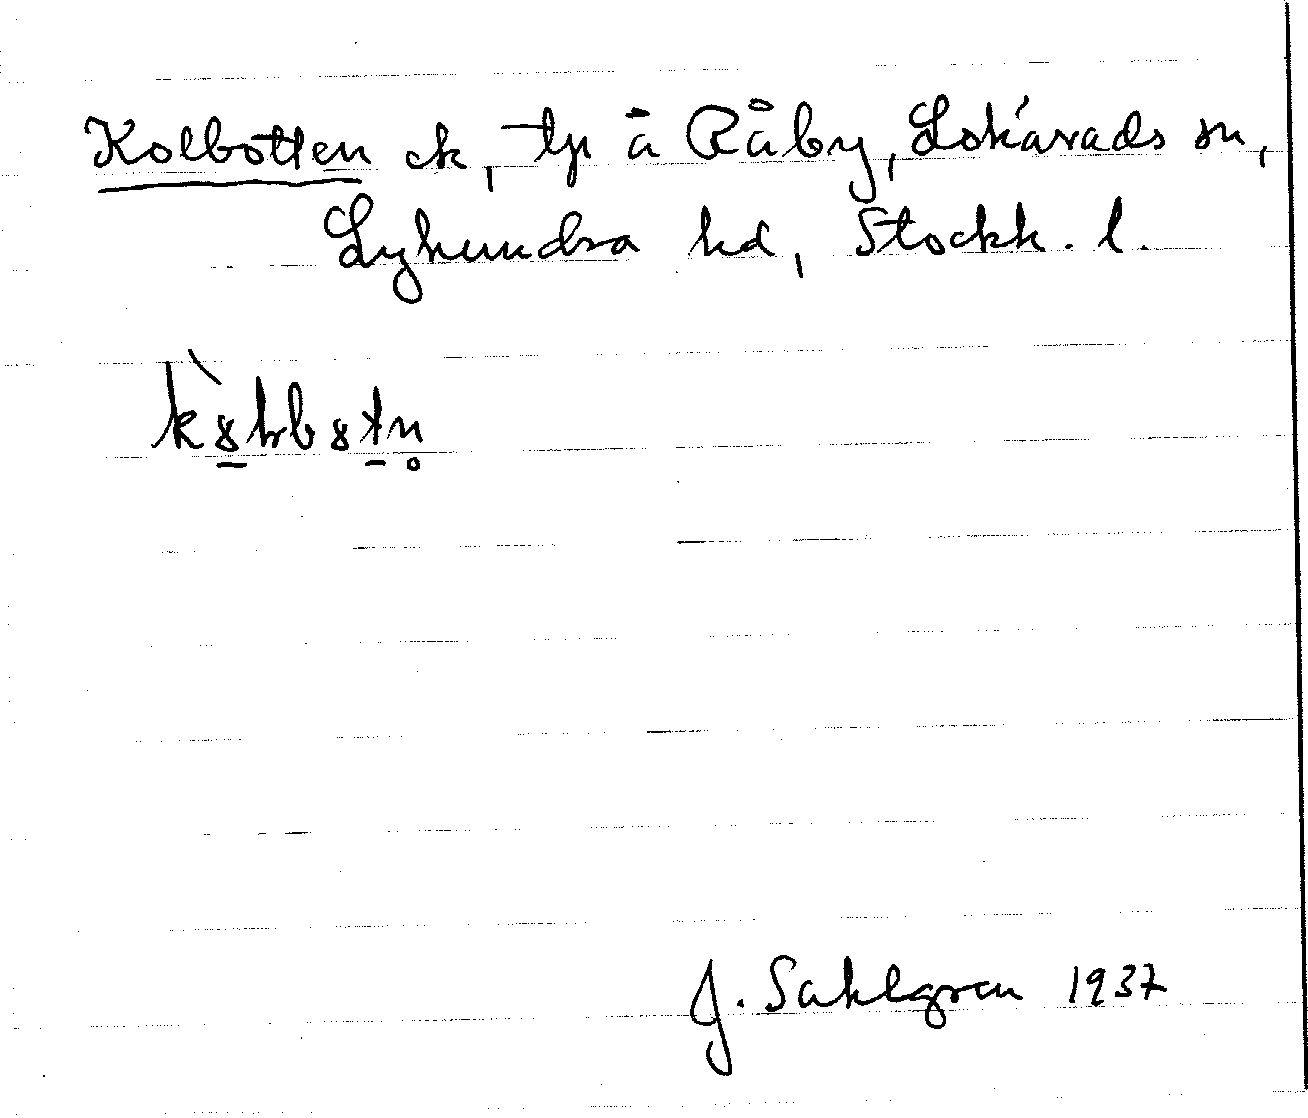 Kolbotten ek, tp å Råby, Lohärads sn,
Lyhundra hd, Stockh. l.
J. Sahlgren 1937